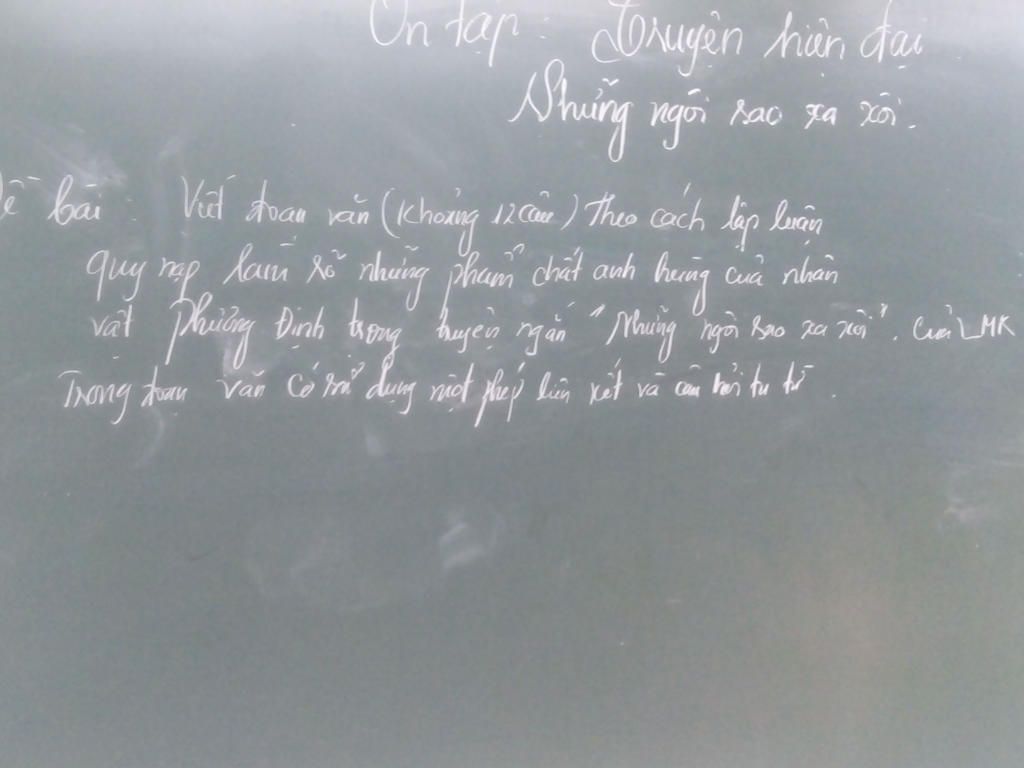 Ôn tập : Truyện hiện đại
Những ngôi sao xa xôi.
Đề bài : Viết đoạn văn (khoảng 12 câu) theo cách lập luận
quy nạp làm rõ những phẩm chất anh hùng của nhân
vật Phương Định trong truyện ngắn "Những ngôi sao xa xôi". của LMK
Trong đoạn văn có sử dụng một phép liên kết và câu hỏi tu từ.